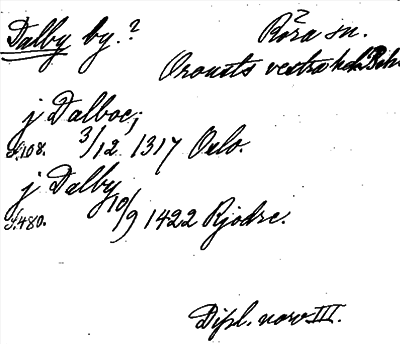 Dalby by.?
Röra sn.
Orousts vestra hd. Boh.
j Dalboe;
s. 108. 3/12 1317 Oslo.
j Dalby
s. 480. 10/9 1422 Rjodre.
Dipl. norv III.